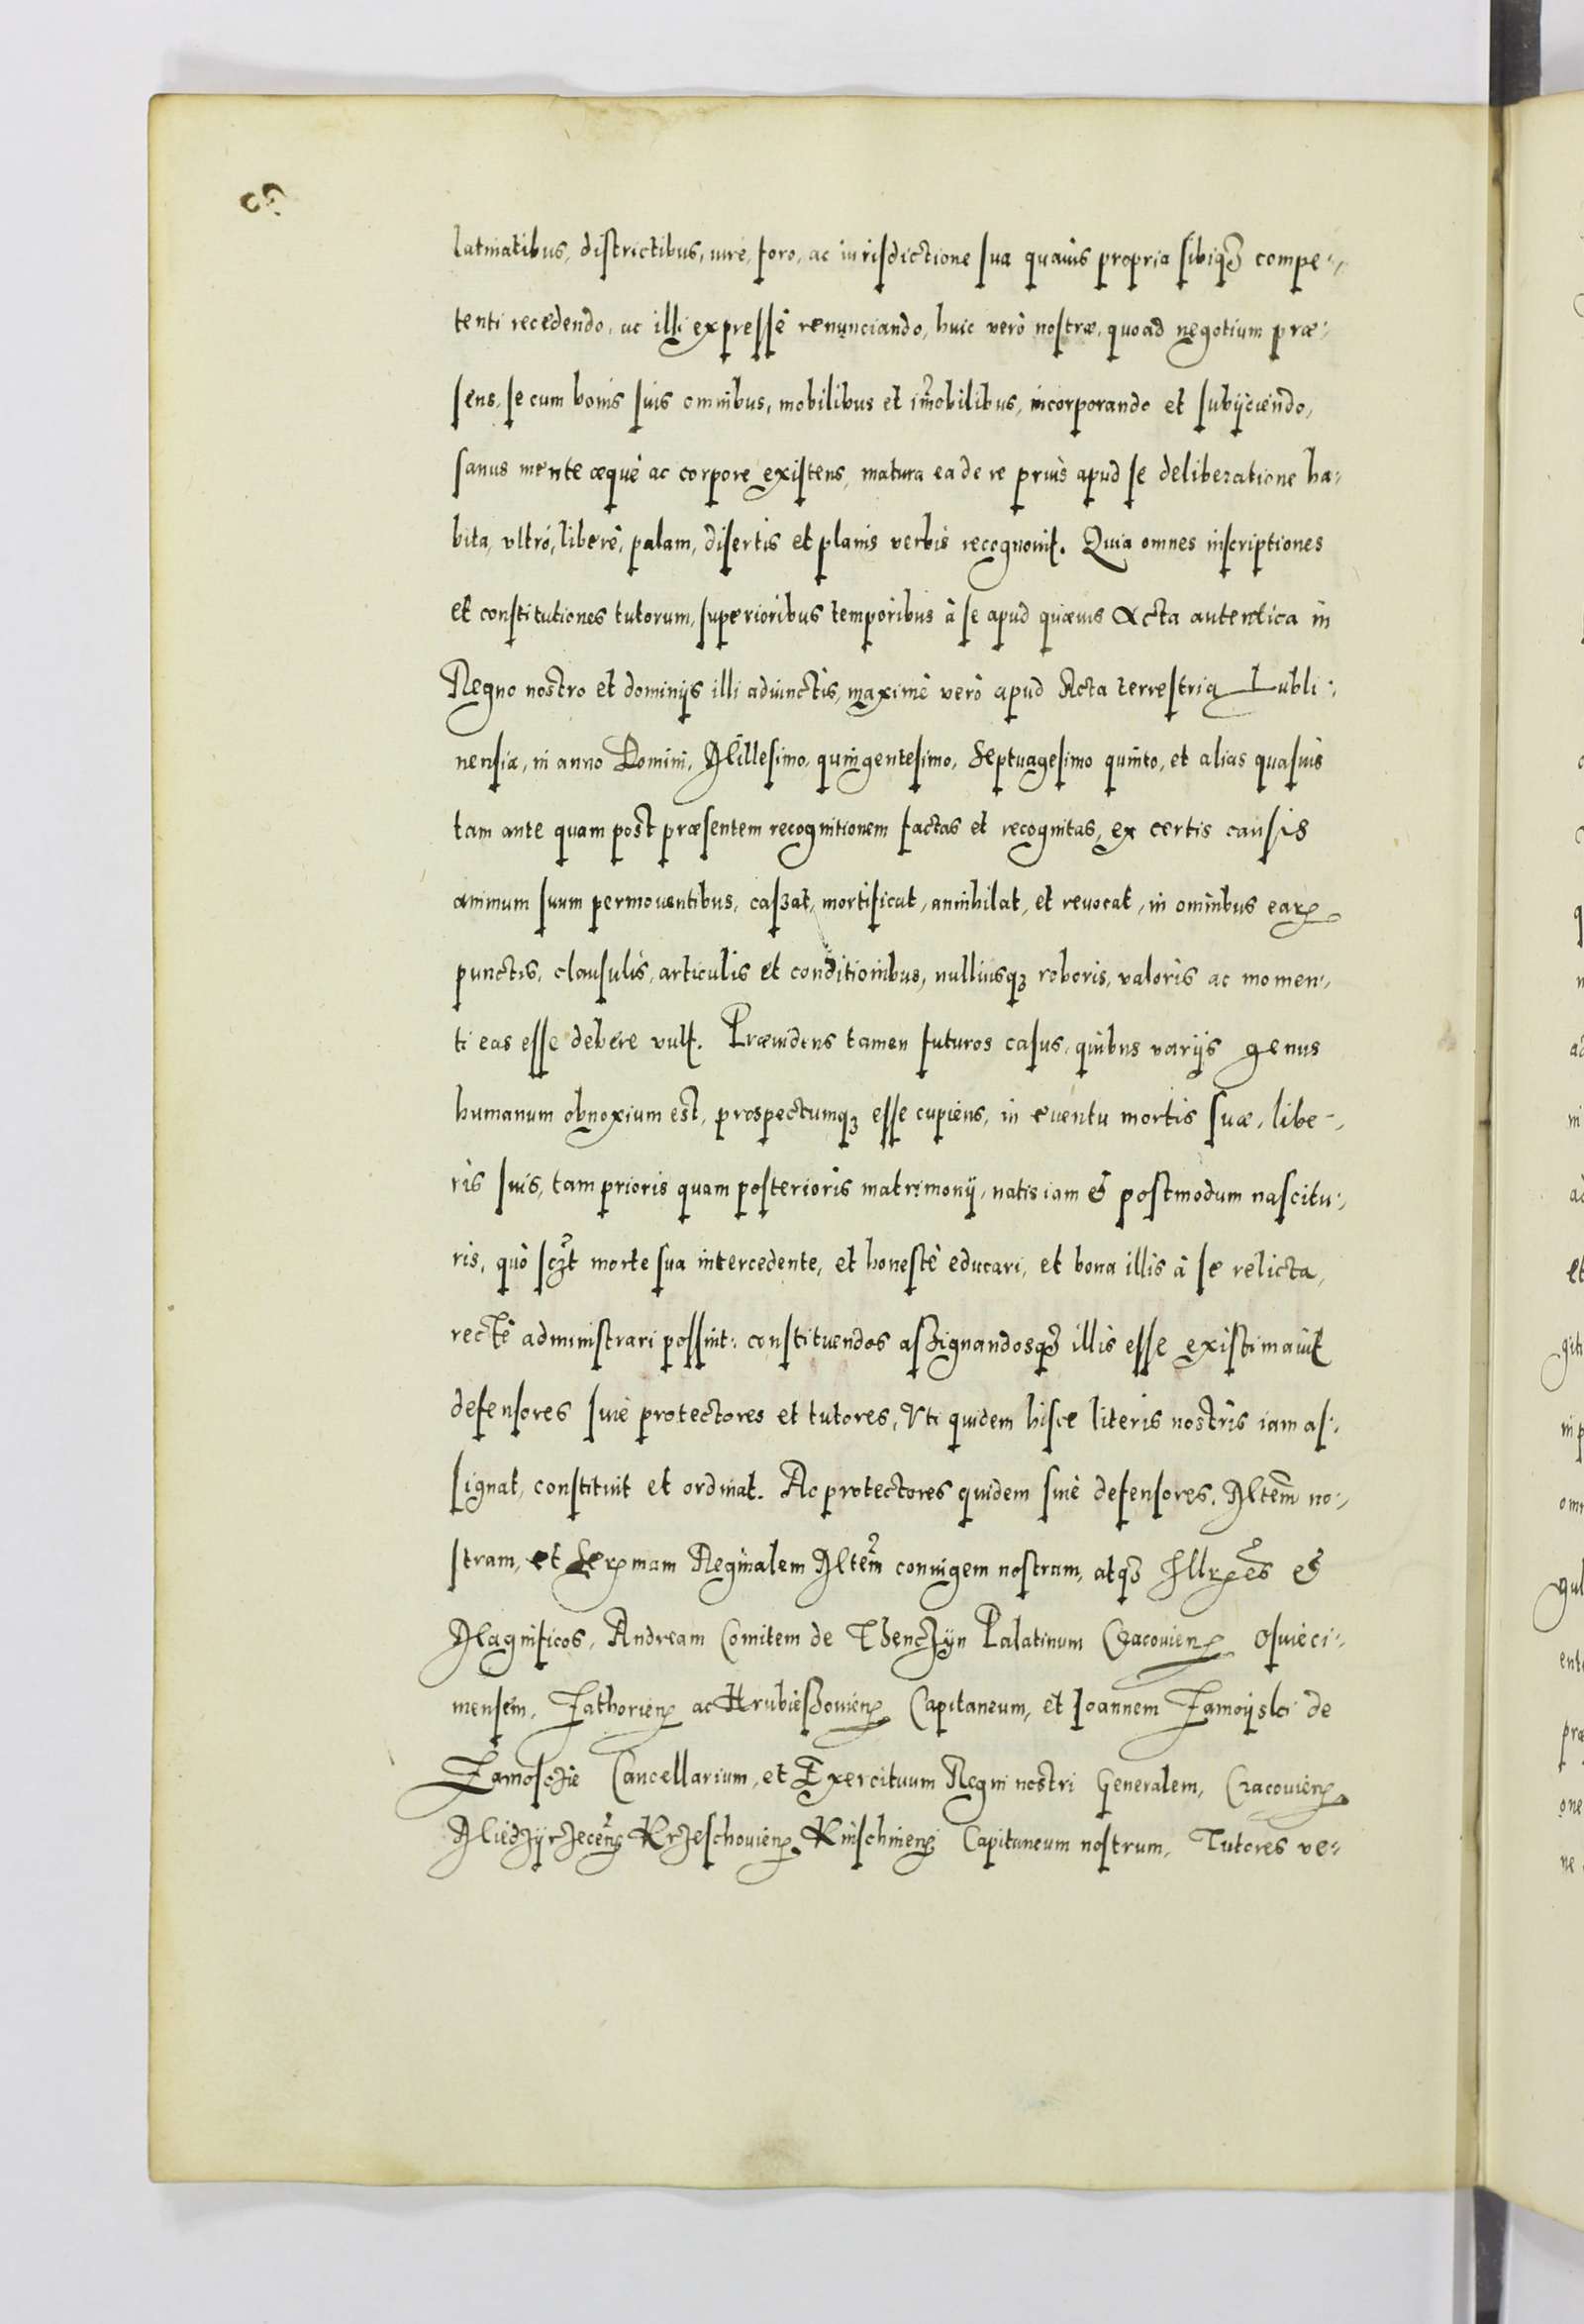 latinatibus, districtibus, iure, foro, ac iurisdictione sua quauis propria sibiq3 compe-
tenti recedendo, ac illi expressè renunciando, huic verò nostræ, quoad negotium præ-
sens, se cum bonis suis omnibus, mobilibus et im̃obilibus, incorporando et subijciendo,
sanus mente æquè ac corpore existens, matura ea de re priùs apud se deliberatione ha-
bita, vltró, liberè, palam, disertis et planis verbis recognouit. Quia omnes inscriptiones
et constitutiones tutorum, superioribus temporibus à se apud quæuis Acta autentica in
Regno nostro et dominijs illi adiunctis, maximè verò apud Acta terrestria Lubli-
nensia, in anno Domini, Millesimo, quingentesimo, Septuagesimo quinto, et alias quasuis
tam ante quam post præsentem recognitionem factas et recognitas, ex certis causis
animum suum permouentibus, cassat, mortificat, annihilat, et reuocat, in omnibus earꝝ
punctis, clausulis, articulis et conditionibus, nulliusq3 roboris, valoris ac momen-
ti eas esse debere vult. Præuidens tamen futuros casus, quibus varijs genus
humanum obnoxium est, prospectumq3 esse cupiens, in euentu mortis suæ, libe-
ris suis, tam prioris quam posterioris matrimonij, natis iam & postmodum nascitu-
ris, quò sc3t morte sua intercedente, et honestè educari, et bona illis à se relicta,
rectè administrari possint: constituendos assignandosq3 illis esse existimauit
defensores siuè protectores et tutores, Vti quidem hisce literis nostris iam as-
signat, constituit et ordinat. Ac protectores quidem siuè defensores, Mltem̃ no-
stram, et Serꝝmam Reginalem Mltem̃ coniugem nostram, atq3 Illrꝝes &
Magnificos, Andream Comitem de Thenczÿn Palatinum Cracouienꝝ Osuieci-
mensem, Zathorienꝝ ac Hrubiessouienꝝ Capitaneum, et Ioannem Zamoÿski de
Zamosczie Cancellarium, et Exercituum Regni nostri Generalem, Cracouienꝝ
Miedzÿrzecenꝝ Krzeschouienꝝ Knischinenꝝ Capitaneum nostrum, Tutores ve-